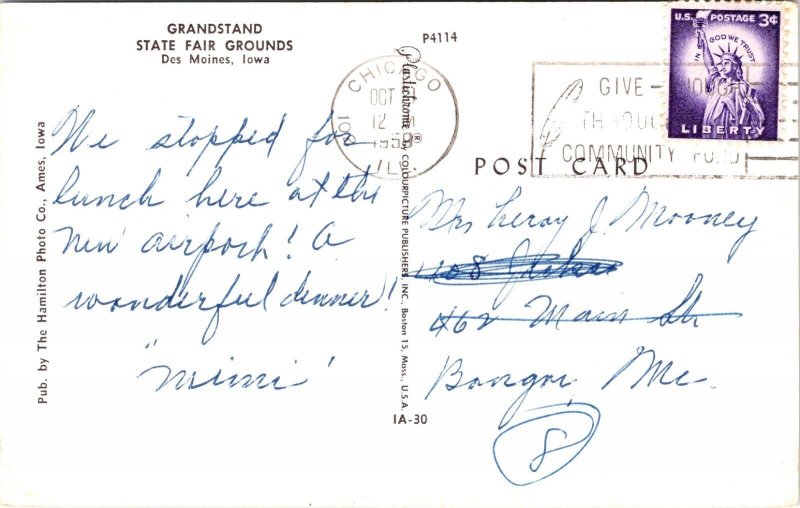 GRANDSTAND
STATE FAIR GROUNDS
Des Moines, Iowa
P4114
CHICAGO
OCT
12 M
1958
ILL.
U.S. POSTAGE 3¢
IN GOD WE TRUST
LIBERTY
GIVE-
THROUGH
COMMUNITY FUND
POST CARD
We stopped for
lunch here at the
new airport! A
wonderful dinner!
"Mimi"
Mrs Leroy J. Mooney
108
462 Main St
Bangor, Me.
8
Pub. by The Hamilton Photo Co., Ames, Iowa
Plastichrome® by COLOURPICTURE PUBLISHERS, INC., Boston 15, Mass., U.S.A.
IA-30